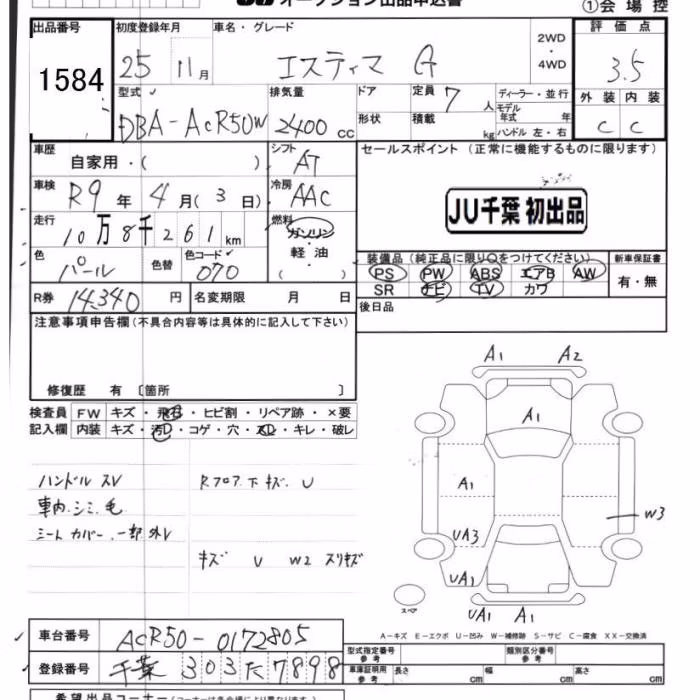 オークション出品申込書
①会場控
出品番号 1584
初度登録年月 25 11月
車名・グレード エスティマ G
2WD・4WD
評価点 3.5
型式 DBA-ACR50W
排気量 2400 cc
ドア
形状
定員 7 人
積載 kg
ディーラー・並行
モデル年式 年
ハンドル 左・右
外装 C 内装 C
車歴 自家用・( )
シフト AT
セールスポイント(正常に機能するものに限ります)
車検 R9 年 4 月(3 日)
冷房 AAC
JU千葉 初出品
走行 10万8千261km
燃料 ガソリン 軽油 ( )
色 パール 色替 色コード 070
装備品(純正品に限り○をつけてください)
PS PW ABS エアB AW
SR ナビ TV カワ
新車保証書 有・無
R券 14,340 円 名変期限 月 日
後日品
注意事項申告欄(不具合内容等は具体的に記入して下さい)
修復歴 有〔箇所 〕
検査員 FW キズ・飛石・ヒビ割・リペア跡・×要
記入欄 内装 キズ・汚れ・コゲ・穴・スレ・キレ・破レ
A1 A2
A1
ハンドル スV
Rフロア下キズ. U
車内.シミ.毛
A1
シートカバー.一部外V
W3
UA3
キズ U W2 スリキズ
UA1
スペア
UA1 A1
A-キズ E-エクボ U-凹み W-補修跡 S-サビ C-腐食 XX-交換済
車台番号 ACR50-0172805
型式指定番号 参考
類別区分番号 参考
登録番号 千葉 303 た 7898
車庫証明用 参考 長さ cm 幅 cm 高さ cm
希望出品コーナー(コーナーは各会場により異なります)